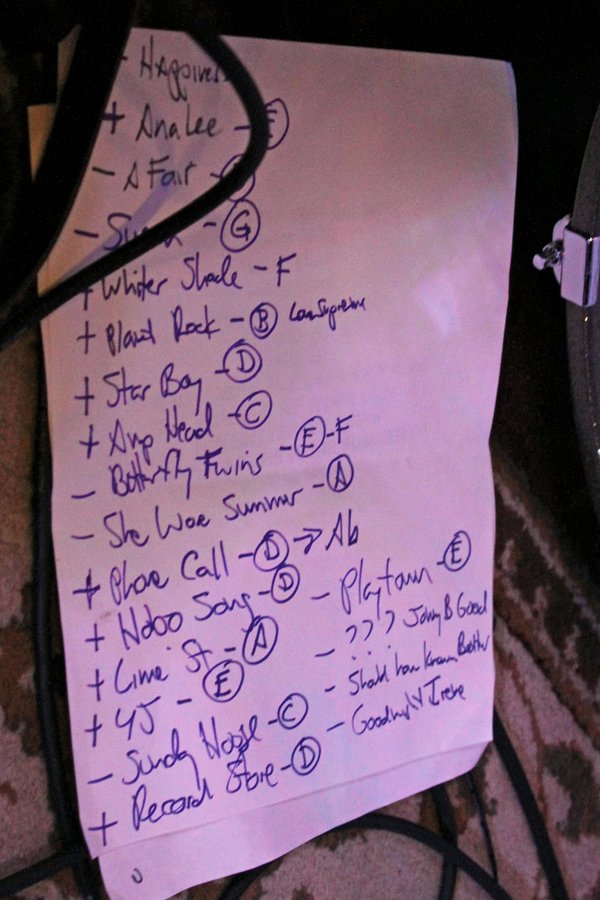 - Happines
+ Analee - E
- A Fair -
- - G
+ Whiter Shade - F
+ Planet Rock - B
+ Star Boy - D
+ Amp Head - C
- Butterfly Twins - E - F
- She Wore Summer - A
+ Phone Call - D → Ab
+ Hobo Song - D
+ Lime St - A
+ 45 - E
- Sunday Noose - C
+ Record Store - D
- Playtown - E
- ??? Johny B Good
- Should have Known Better
- Goodnight Irene